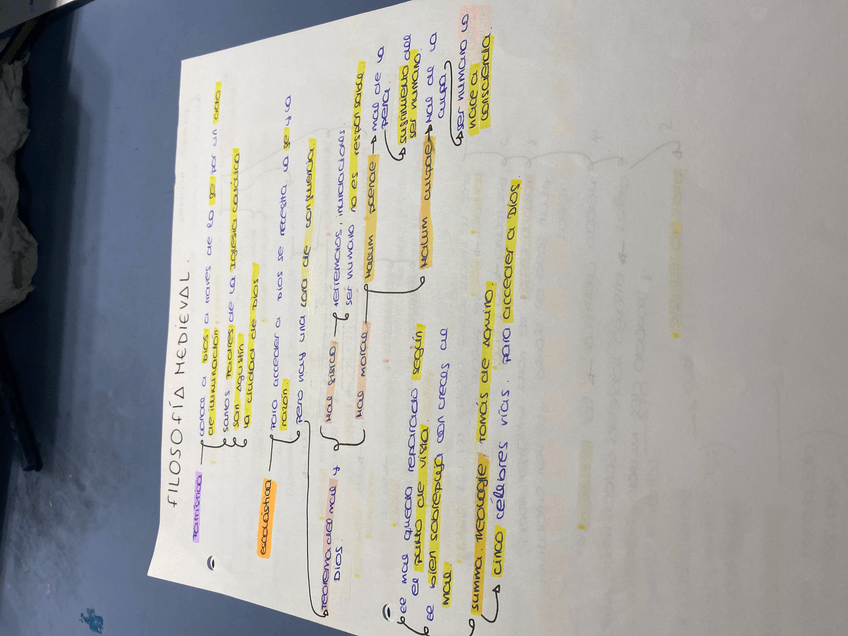 FILOSOFÍA MEDIEVAL.
Patrística
conoce a Dios a traves de la fe por un acto
de iluminación.
santos Padres de la Iglesia católica
San Agustín
la ciudad de Dios
escolástica
Para acceder a Dios se necesita la fe y la
razón.
pero hay una zona de confluencia.
Teorema del mal y
Dios
Mal físico → terremotos, inundaciones.
ser humano no es responsable.
Mal moral
Malum poenae → Mal de la
pena.
sufrimiento del
ser humano.
Malum culpae → Mal de la
culpa.
ser humano lo
hace a
consciencia.
el mal queda reparado según
el punto de vista
el bien sobrepuja con creces al
mal.
summa. Theologie, Tomás de Aquino.
cinco célebres vías. para acceder a Dios.